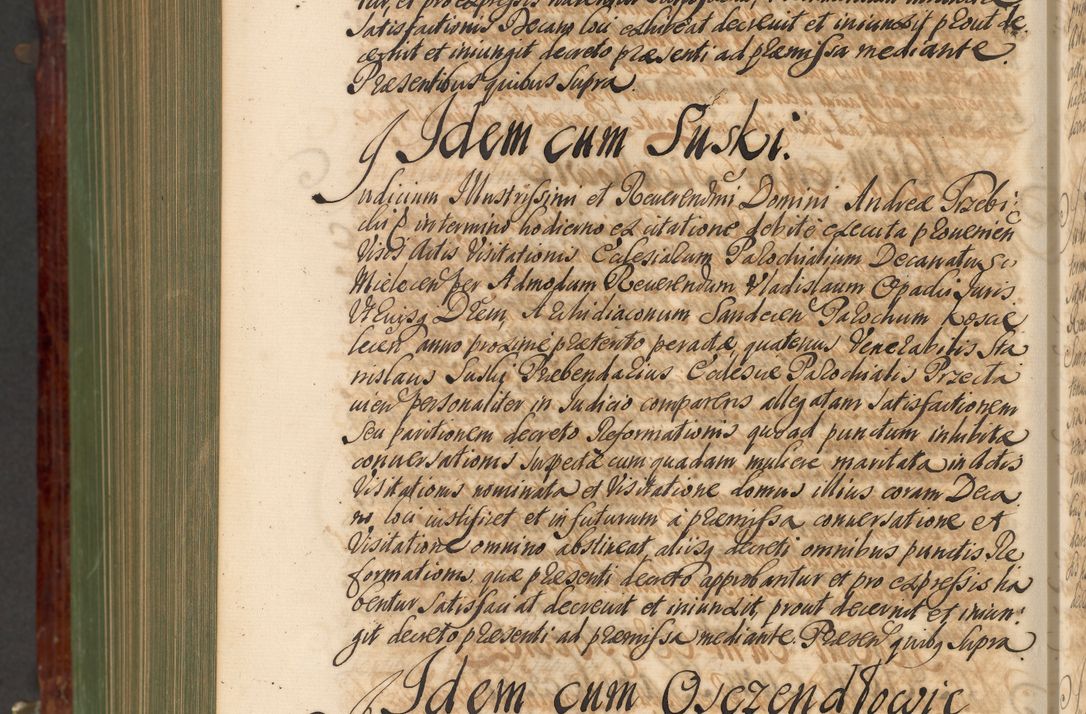 Satisfactionis Decano loci exhibeat decrevit et iniunxit prout de
cernit et iniungit decreto præsenti ad præmissa mediante.
Præsentibus quibus supra.
Idem cum Suski.
Judicium Illustrissimi et Reverendmi Domini Andreæ Trzebi:
cki in termino hodierno ex citatione debite executa provenien
Visis Actis Visitationis Ecclesiarum Parochialium Decanatus
Mielecen per Admodum Reverendum Vladislaum Opacki Juris
Utriusq Drem, Archidiaconum Sandecien Parochum
lecien anno proxime præterito peractæ, quatenus Venerabilis Sta
nislaus Suski Præbendarius Ecclesiæ Parochialis Przecla
vien personaliter in Judicio comparens allegatam satisfactionem
seu paritionem decreto Reformationis quoad punctum inhibitæ
conversationis suspectæ cum quadam muliere maritata in Actis
Visitationis nominata et Visitatione domus illius coram Deca
no loci iustificet et in futurum a præmissa conversatione et
Visitatione omnino abstineat, aliisq decreti omnibus punctis Re
formationis, quæ præsenti decreto approbantur et pro expressis ha
bentur satisfaciat decrevit et iniunxit, prout decernit et iniun:
git decreto præsenti ad præmissa mediante. Præsen quibq supra.
Idem cum Oszczendłowic